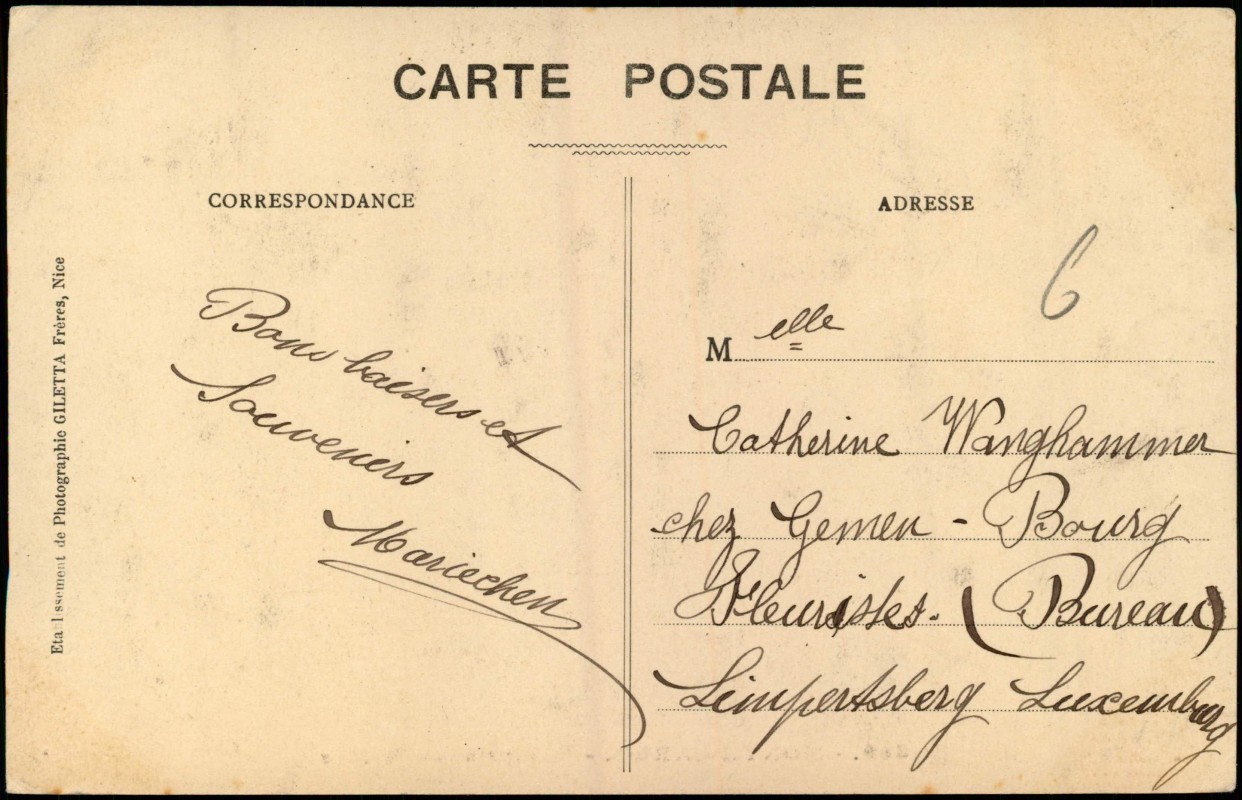 CARTE POSTALE
CORRESPONDANCE
ADRESSE
6
Bons baisers et
Souveniers
Mariechen
Melle
Catherine Wanghammer
chez Gemen - Bourg
Fleuristes. (Bureau)
Limpertsberg Luxemburg
Etablissement de Photographie GILETTA Frères, Nice